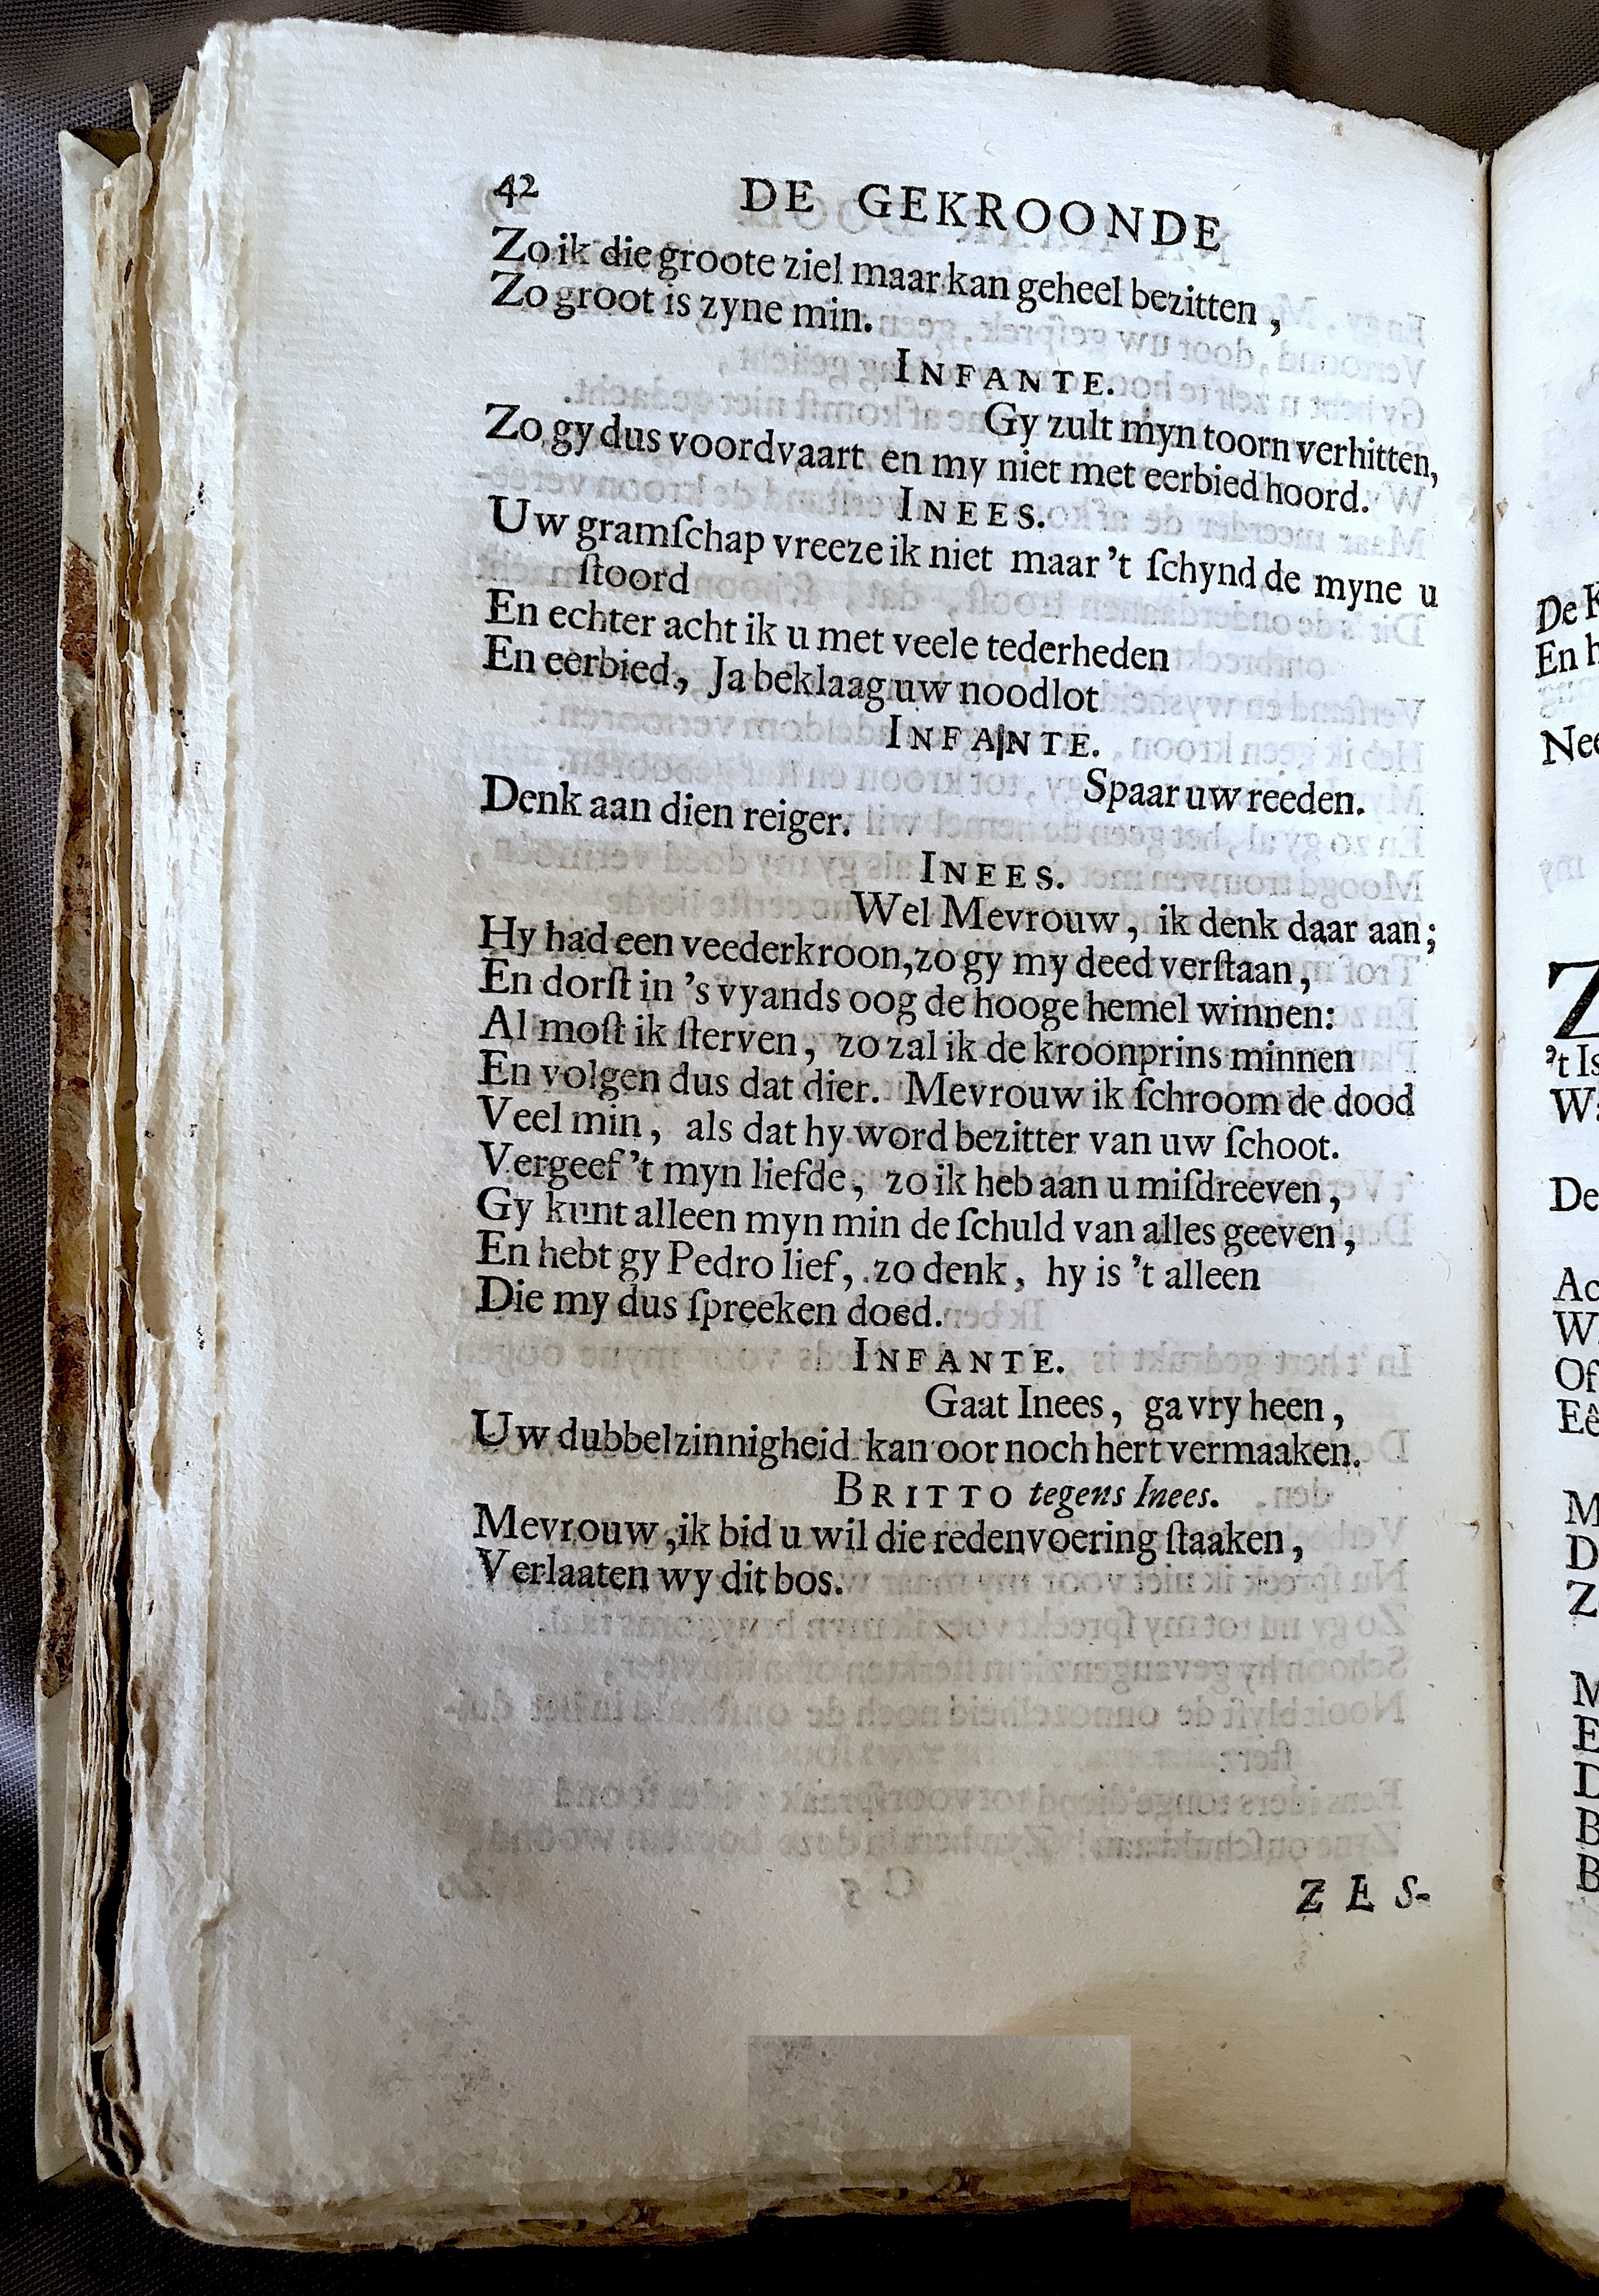 42 DE GEKROONDE
Zo ik die groote ziel maar kan geheel bezitten,
Zo groot is zyne min.
INFANTE.
Gy zult myn toorn verhitten,
Zo gy dus voordvaart en my niet met eerbied hoord.
INEES.
Uw gramſchap vreeze ik niet maar 't ſchynd de myne u
ſtoord
En echter acht ik u met veele tederheden
En eerbied, Ja beklaag uw noodlot
INFANTE.
Spaar uw reeden.
Denk aan dien reiger.
INEES.
Wel Mevrouw, ik denk daar aan;
Hy had een veederkroon, zo gy my deed verſtaan,
En dorſt in 's vyands oog de hooge hemel winnen:
Al moſt ik ſterven, zo zal ik de kroonprins minnen
En volgen dus dat dier. Mevrouw ik ſchroom de dood
Veel min, als dat hy word bezitter van uw ſchoot.
Vergeef 't myn liefde, zo ik heb aan u miſdreeven,
Gy kunt alleen myn min de ſchuld van alles geeven,
En hebt gy Pedro lief, zo denk, hy is 't alleen
Die my dus ſpreeken doed.
INFANTE.
Gaat Inees, ga vry heen,
Uw dubbelzinnigheid kan oor noch hert vermaaken.
BRITTO tegens Inees.
Mevrouw, ik bid u wil die redenvoering ſtaaken,
Verlaaten wy dit bos.
ZES-
De
En
't Is
De
Of